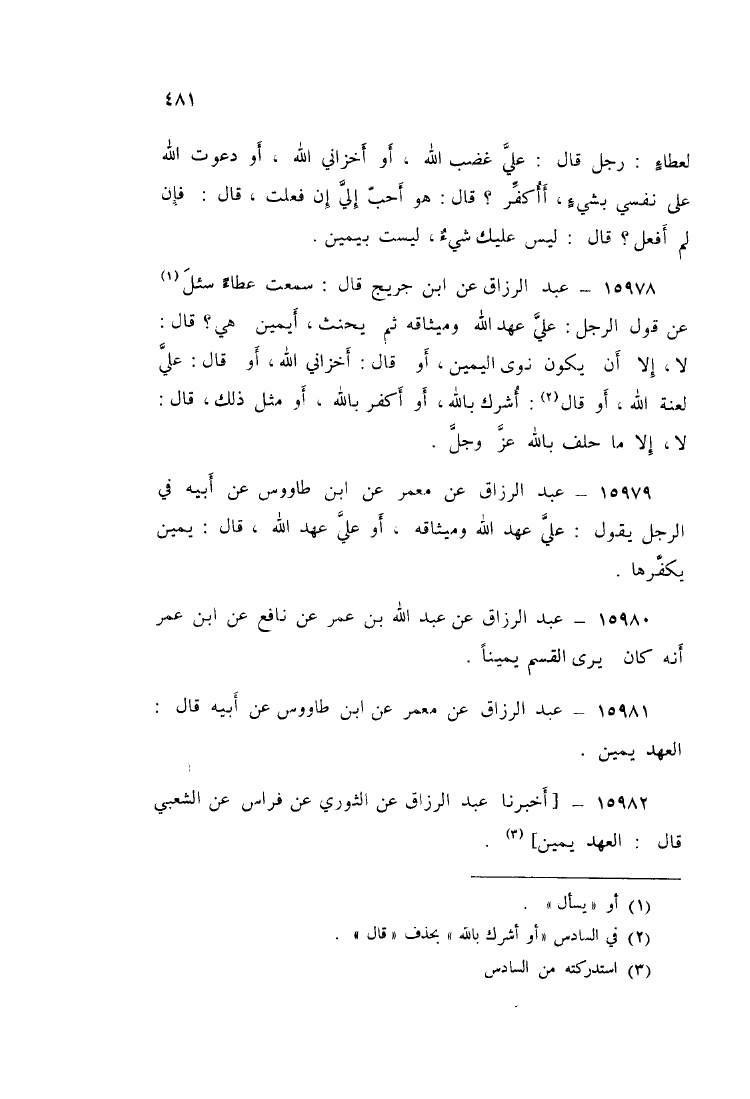 ٤٨١
لعطاءٍ : رجل قال : عليَّ غضب الله ، أو أخزاني الله ، أو دعوت الله
على نفسي بشيءٍ ، أَأُكفِّر ؟ قال : هو أحبّ إليَّ إن فعلت ، قال : فإن
لم أفعل ؟ قال : ليس عليك شيءٌ ، ليست بيمين .
١٥٩٧٨ – عبد الرزاق عن ابن جريج قال : سمعت عطاءً سئلَ (١)
عن قول الرجل : عليَّ عهد الله وميثاقه ثم يحنث ، أيمين هي ؟ قال :
لا ، إلا أن يكون نوى اليمين ، أو قال : أخزاني الله ، أو قال : عليَّ
لعنة الله ، أو قال (٢) : أُشرك بالله ، أو أكفر بالله ، أو مثل ذلك ، قال :
لا ، إلا ما حلف بالله عزَّ وجلَّ .
١٥٩٧٩ – عبد الرزاق عن معمر عن ابن طاووس عن أبيه في
الرجل يقول : عليَّ عهد الله وميثاقه ، أو عليَّ عهد الله ، قال : يمين
يكفِّرها .
١٥٩٨٠ – عبد الرزاق عن عبد الله بن عمر عن نافع عن ابن عمر
أنه كان يرى القسم يميناً .
١٥٩٨١ – عبد الرزاق عن معمر عن ابن طاووس عن أبيه قال :
العهد يمين .
١٥٩٨٢ – [ أخبرنا عبد الرزاق عن الثوري عن فراس عن الشعبي
قال : العهد يمين ] (٣) .
(١) أو « يسأل » .
(٢) في السادس « أو أشرك بالله » بحذف « قال » .
(٣) استدركته من السادس